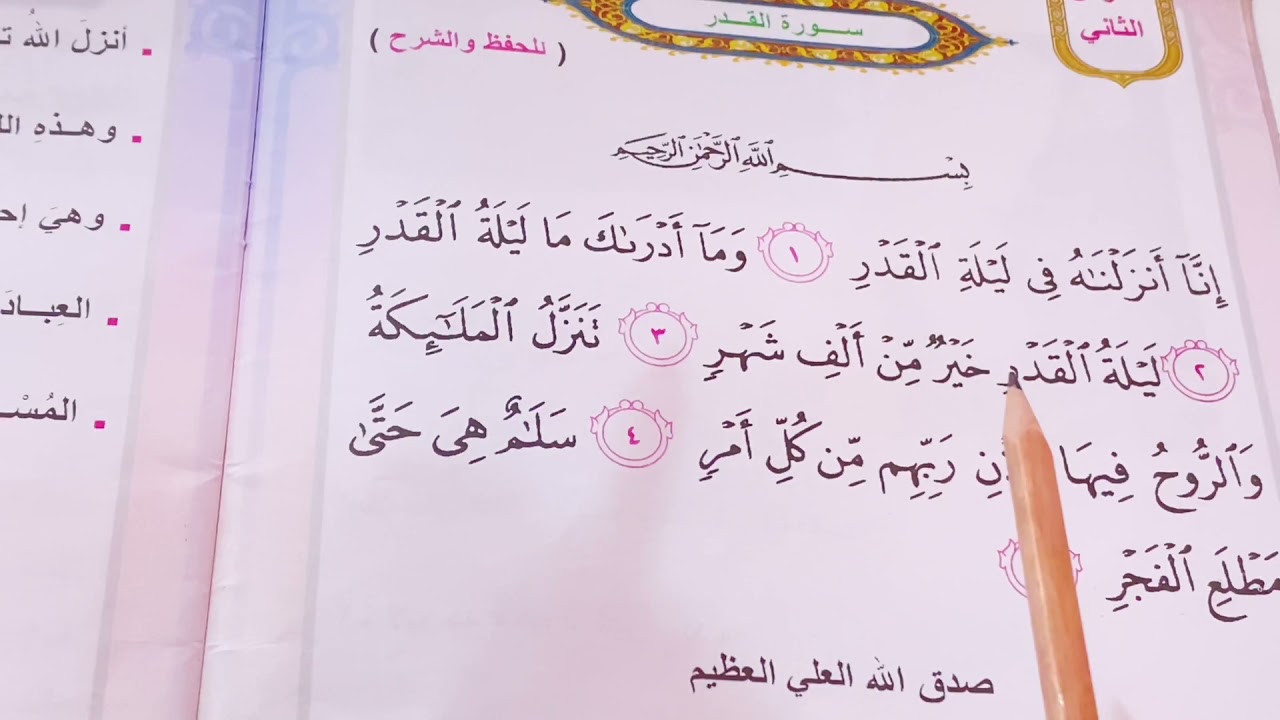 الثاني
سورة القدر
( للحفظ والشرح )
بِسْمِ ٱللَّهِ ٱلرَّحْمَٰنِ ٱلرَّحِيمِ
إِنَّآ أَنزَلْنَٰهُ فِى لَيْلَةِ ٱلْقَدْرِ ١ وَمَآ أَدْرَىٰكَ مَا لَيْلَةُ ٱلْقَدْرِ
٢ لَيْلَةُ ٱلْقَدْرِ خَيْرٌ مِّنْ أَلْفِ شَهْرٍ ٣ تَنَزَّلُ ٱلْمَلَٰٓئِكَةُ
وَٱلرُّوحُ فِيهَا رَبِّهِم مِّن كُلِّ أَمْرٍ ٤ سَلَٰمٌ هِىَ حَتَّىٰ
مَطْلَعِ ٱلْفَجْرِ
صدق الله العلي العظيم
أنزلَ اللهُ
وهـذهِ
وهيَ